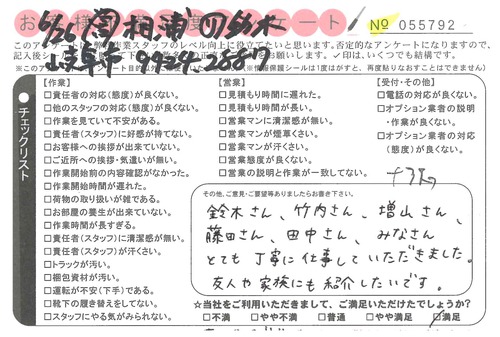 お客様満足度アンケート
№ 055792
このアンケートは弊社作業スタッフのレベル向上に役立てたいと思います。否定的なアンケートになりますので、
☑印は、いくつでも結構です。
チェックリスト
【作業】
□責任者の対応(態度)が良くない。
□他のスタッフの対応(態度)が良くない。
□作業を見ていて不安がある。
□責任者(スタッフ)に好感が持てない。
□お客様への挨拶が出来ていない。
□ご近所への挨拶・気遣いが無い。
□作業開始前の内容確認がなかった。
□作業開始時間が遅れた。
□荷物の取り扱いが雑である。
□お部屋の養生が出来ていない。
□作業時間が長すぎる。
□責任者(スタッフ)に清潔感が無い。
□責任者(スタッフ)が汗くさい。
□トラックが汚い。
□梱包資材が汚い。
□運転が不安(下手)である。
□靴下の履き替えをしてない。
□スタッフにやる気がみられない。
【営業】
□見積もり時間に遅れた。
□見積もり時間が長い。
□営業マンに清潔感が無い。
□営業マンが煙草くさい。
□営業マンが汗くさい。
□営業態度が良くない。
□営業の説明と作業が一致してない。
【受付・その他】
□電話の対応が良くない。
□オプション業者の説明
・作業が良くない。
□オプション業者の対応
(態度)が良くない。
その他、ご意見・ご要望等ありましたらお書き下さい。
鈴木さん、竹内さん、増山さん、
藤田さん、田中さん、みなさん
とても丁寧に仕事していただきました。
友人や家族にも紹介したいです。
☆当社をご利用いただきまして、ご満足いただけてしょうか?
□不満 □やや不満 □普通 □やや満足 ☑満足